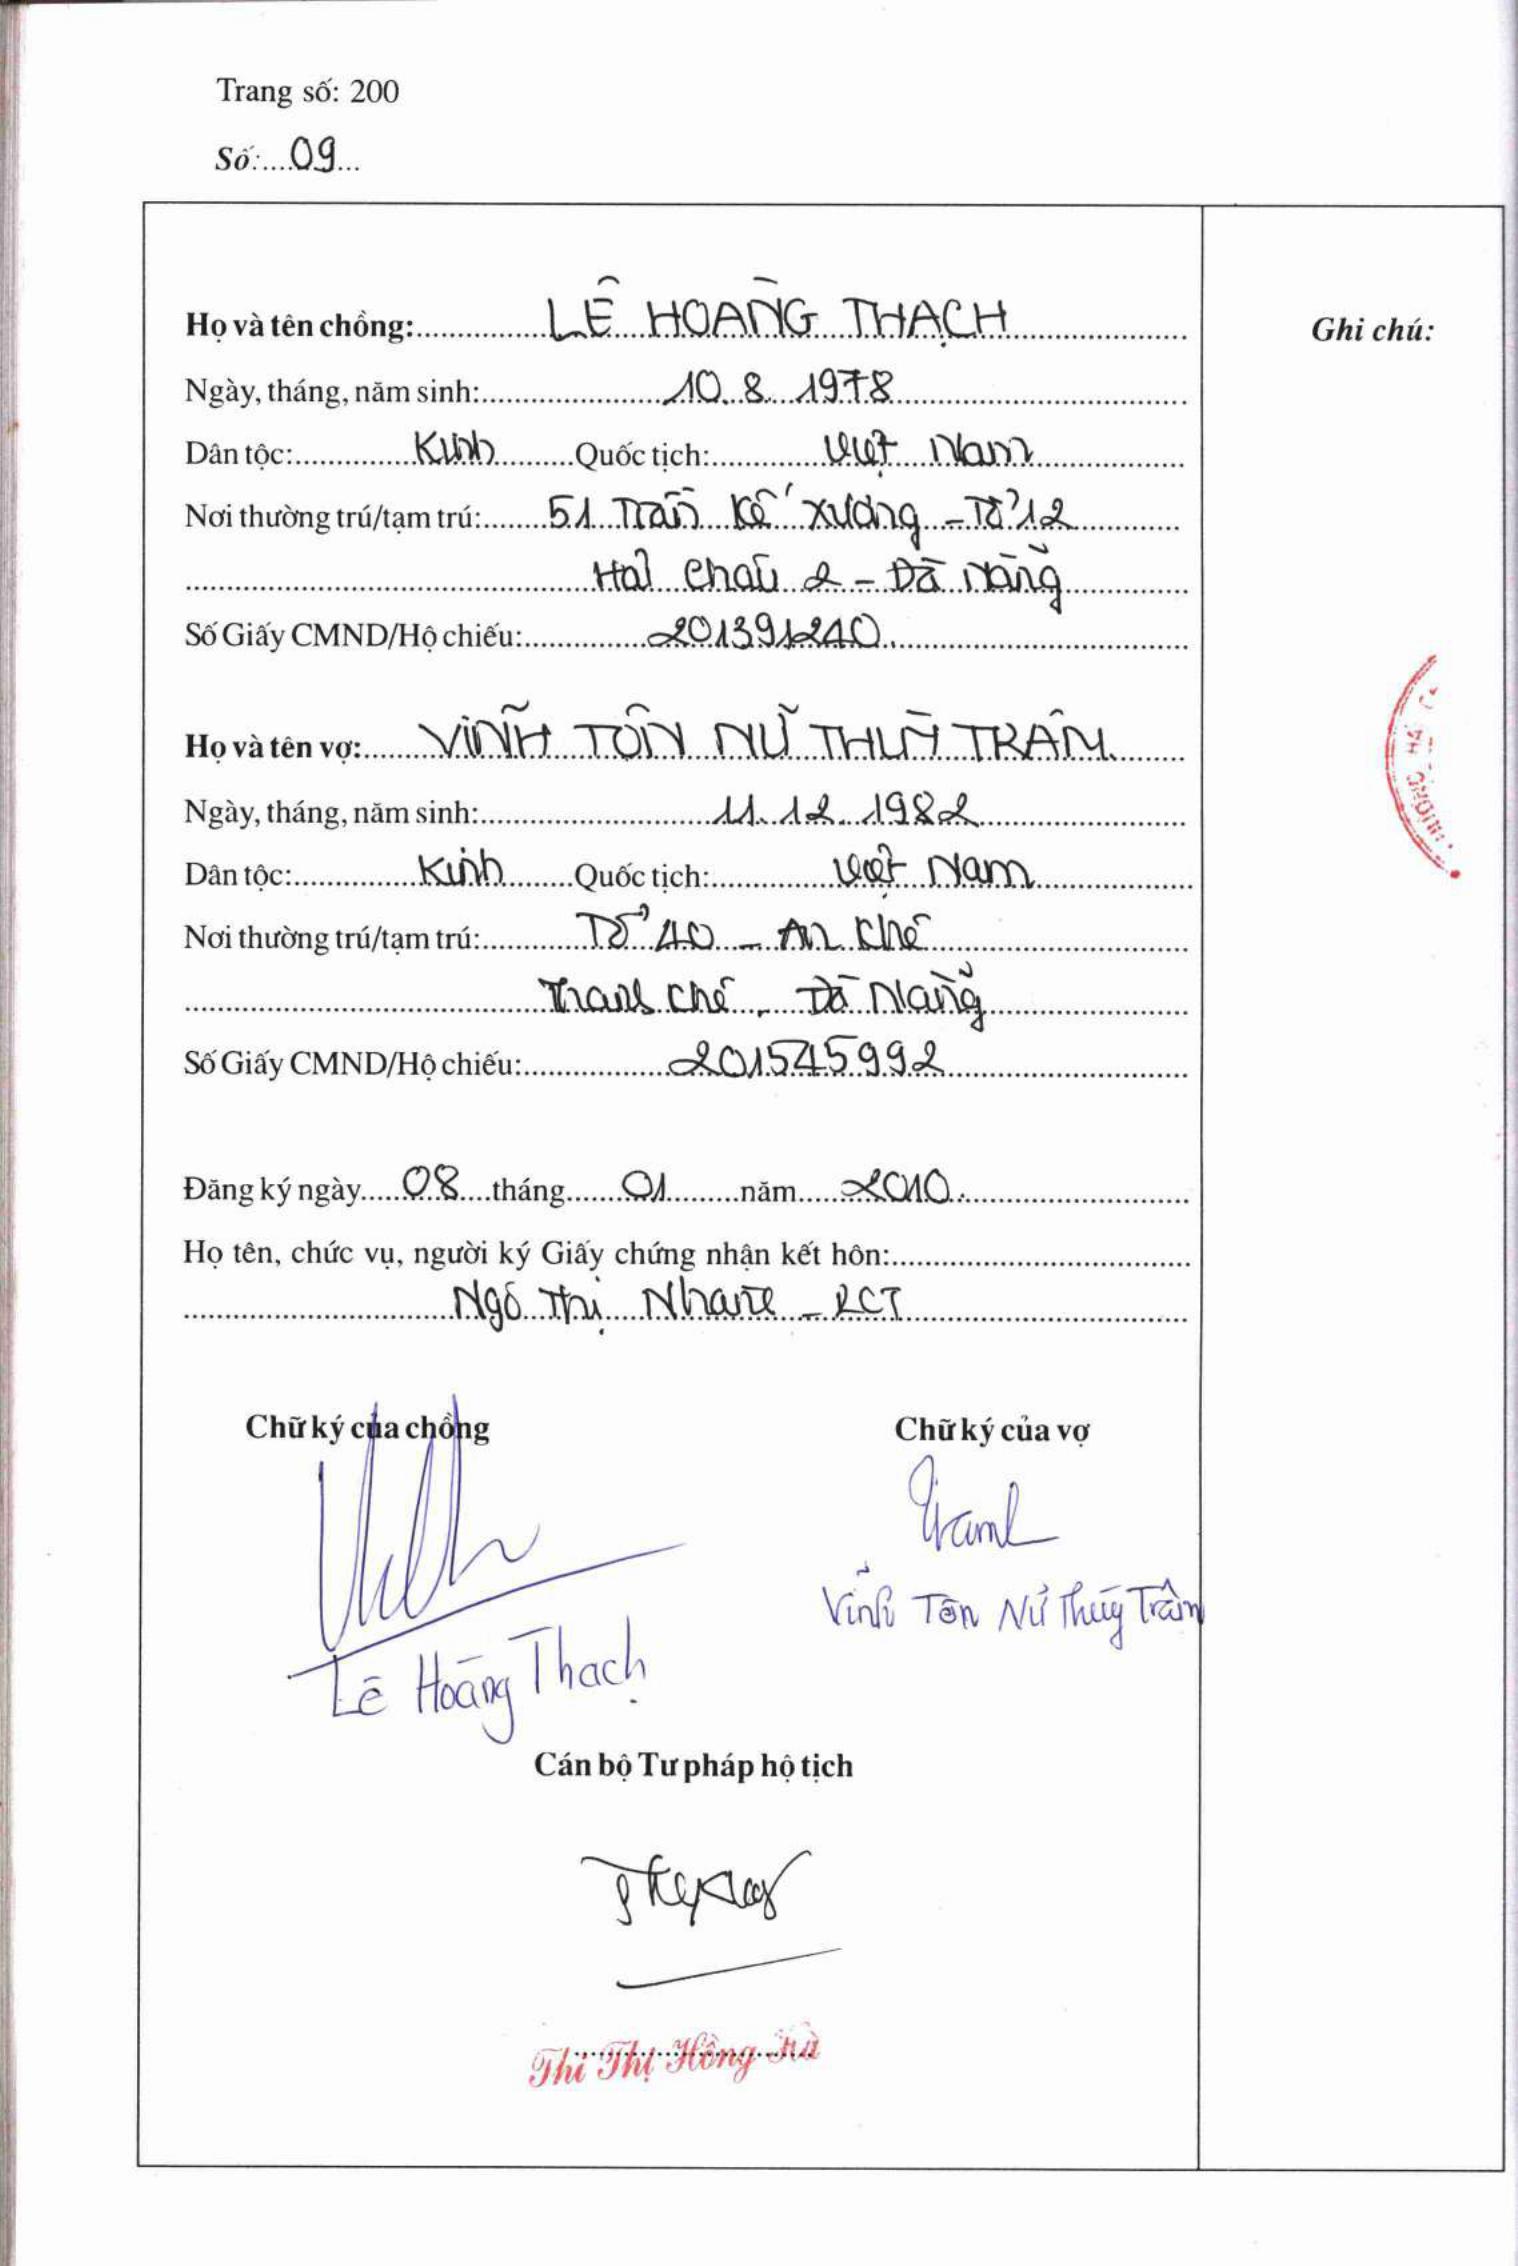 Trang số: 200
Số: 09
Họ và tên chồng: LÊ HOÀNG THẠCH
Ghi chú:
Ngày, tháng, năm sinh: 10.8.1978
Dân tộc: Kinh Quốc tịch: Việt Nam
Nơi thường trú/tạm trú: 51 Trần Kế Xương - Tổ 12
Hải Châu 2 - Đà Nẵng
Số Giấy CMND/Hộ chiếu: 201391240
Họ và tên vợ: VĨNH TÔN NỮ THUỲ TRÂM
Ngày, tháng, năm sinh: 11.12.1982
Dân tộc: Kinh Quốc tịch: Việt Nam
Nơi thường trú/tạm trú: Tổ 40 - An Khê
Thanh Khê - Đà Nẵng
Số Giấy CMND/Hộ chiếu: 201545992
Đăng ký ngày 08 tháng 01 năm 2010
Họ tên, chức vụ, người ký Giấy chứng nhận kết hôn:
Ngô Thị - PCT
Chữ ký của chồng Chữ ký của vợ
Vĩnh Tôn Nữ Thùy Trâm
Lê Hoàng Thạch
Cán bộ Tư pháp hộ tịch
Thi Thị Hồng Hà